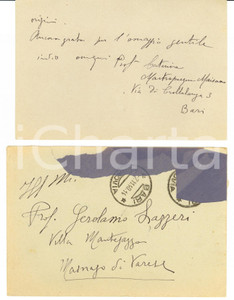 origini.
Ancora grata per l'omaggio gentile
invio omaggi Prof.
Via De Crollalanza 3
Bari
iCharta
BARI
Ill. Mo.
Prof. Gerolamo Lazzeri
Villa Mantegazza
Masnago di Varese